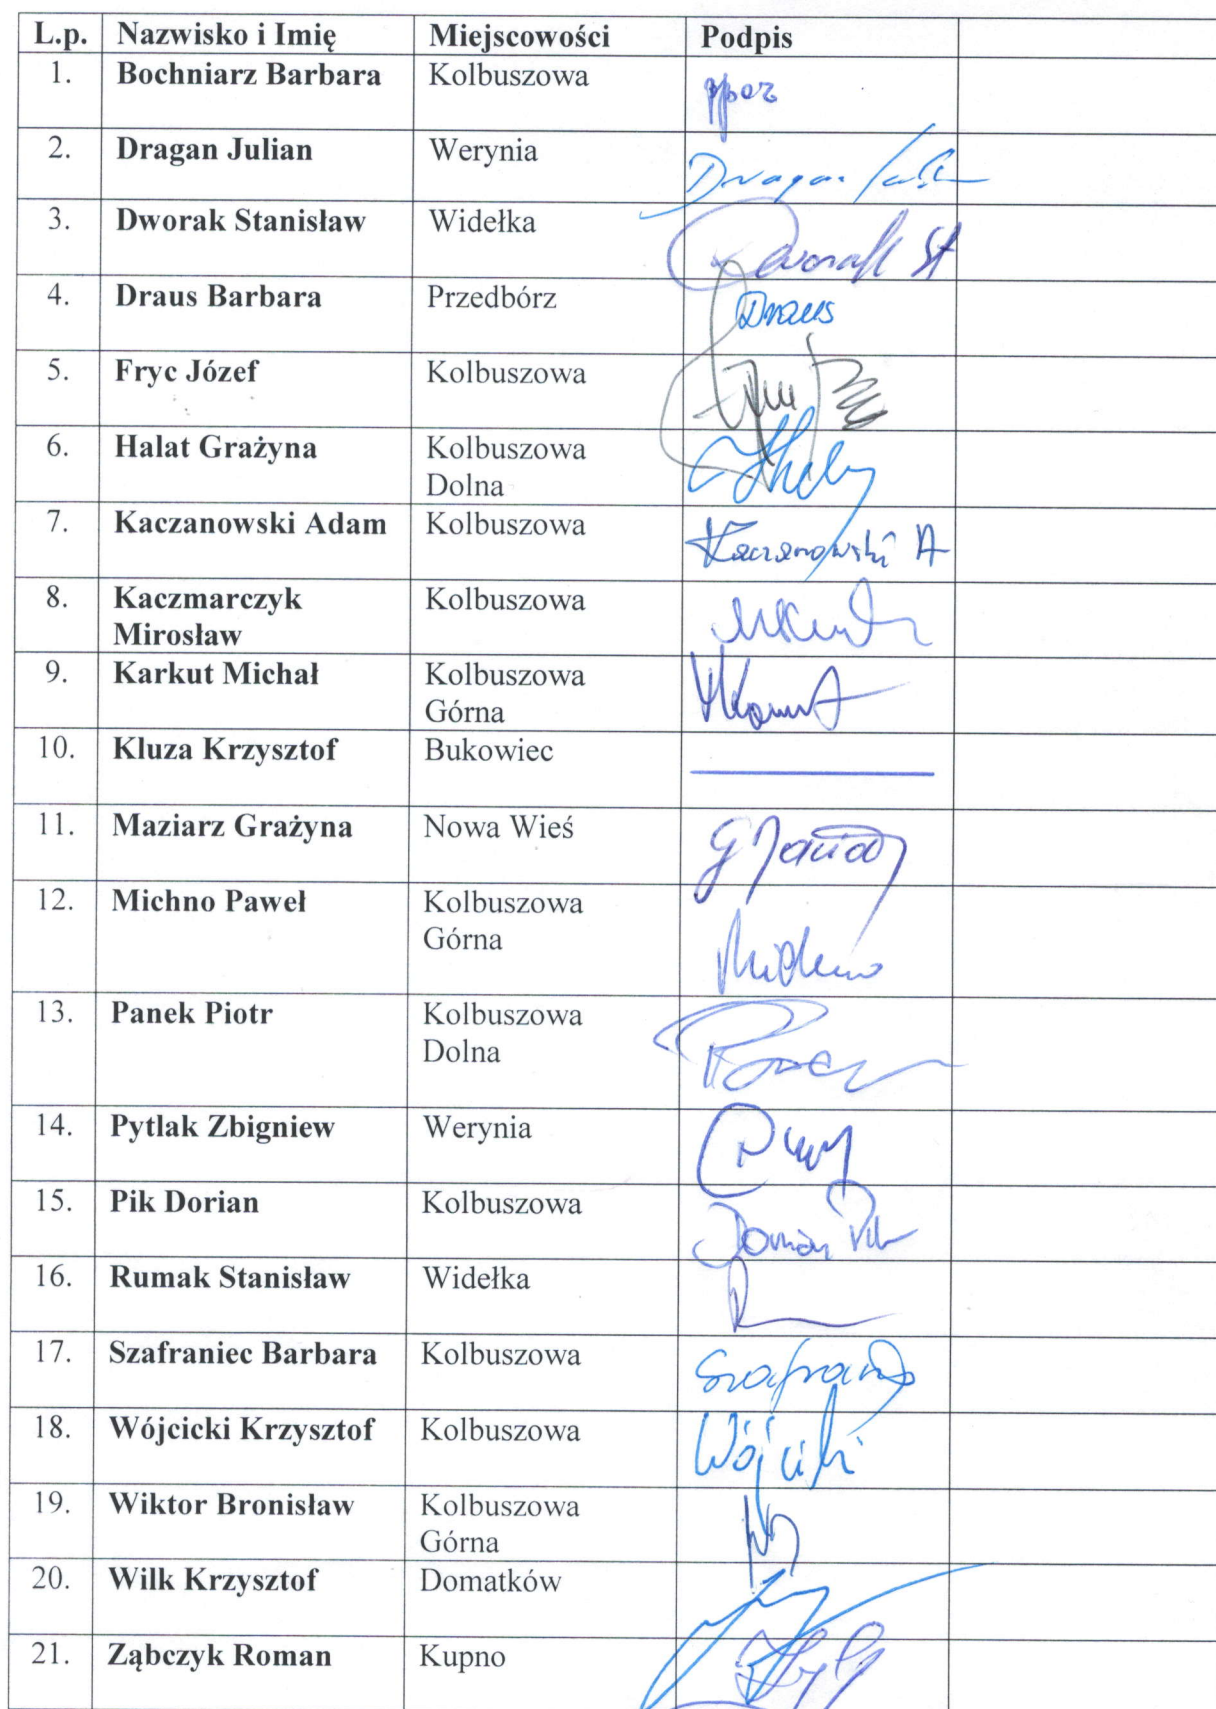 L.p. Nazwisko i Imię Miejscowości Podpis
1. Bochniarz Barbara Kolbuszowa
2. Dragan Julian Werynia Dragan
3. Dworak Stanisław Widełka Dworak St
4. Draus Barbara Przedbórz Draus
5. Fryc Józef Kolbuszowa
6. Halat Grażyna Kolbuszowa
Dolna
7. Kaczanowski Adam Kolbuszowa Kaczanowski A
8. Kaczmarczyk Kolbuszowa
Mirosław
9. Karkut Michał Kolbuszowa
Górna
10. Kluza Krzysztof Bukowiec
11. Maziarz Grażyna Nowa Wieś
12. Michno Paweł Kolbuszowa
Górna Michno
13. Panek Piotr Kolbuszowa
Dolna
14. Pytlak Zbigniew Werynia
15. Pik Dorian Kolbuszowa Dorian Pik
16. Rumak Stanisław Widełka
17. Szafraniec Barbara Kolbuszowa
18. Wójcicki Krzysztof Kolbuszowa
19. Wiktor Bronisław Kolbuszowa
Górna
20. Wilk Krzysztof Domatków
21. Ząbczyk Roman Kupno